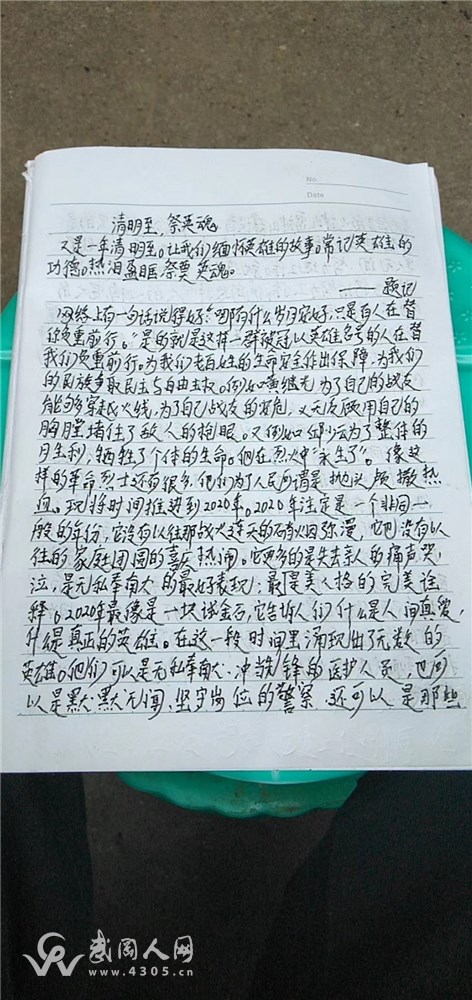 No
Date
清明至,祭英魂
又是一年清明至。让我们缅怀英雄的故事。常记英雄的
功德。热泪盈眶祭奠英魂。
——题记
网络上有一句话说得好:“哪有什么岁月安好,只是有人在替
你负重前行。”是的就是这样一群被冠以英雄名号的人在替
我们负重前行。为我们老百姓的生命安全作出保障,为我们
的民族争取民主与自由主权。例如黄继光为了自己的战友
能够穿越火线,为了自己战友的安危,义无反顾用自己的
胸膛堵住了敌人的枪眼。又例如邱少云为了整体的
胜利,牺牲了个体的生命。他在烈火中“永生了”。像这
样的革命烈士还有很多,他们为了人民可谓是抛头颅撒热
血。现将时间推进到2020年。2020年注定是一个非同一
般的年份,它没有以往那战火连天的硝烟弥漫,它也没有以
往的家庭团圆的喜庆热闹。它更多的是失去亲人的痛声哭
泣,是无私奉献的最好表现;最是美人格的完美诠
释。2020年最像是一块试金石,它告诉人们什么是人间真爱,
什么是真正的英雄。在这一段时间里涌现出了无数的
英雄。他们可以是无私奉献、冲锋的医护人员,也可
以是默默无闻、坚守岗位的警察,还可以是那些
武冈人网
www.4305.cn